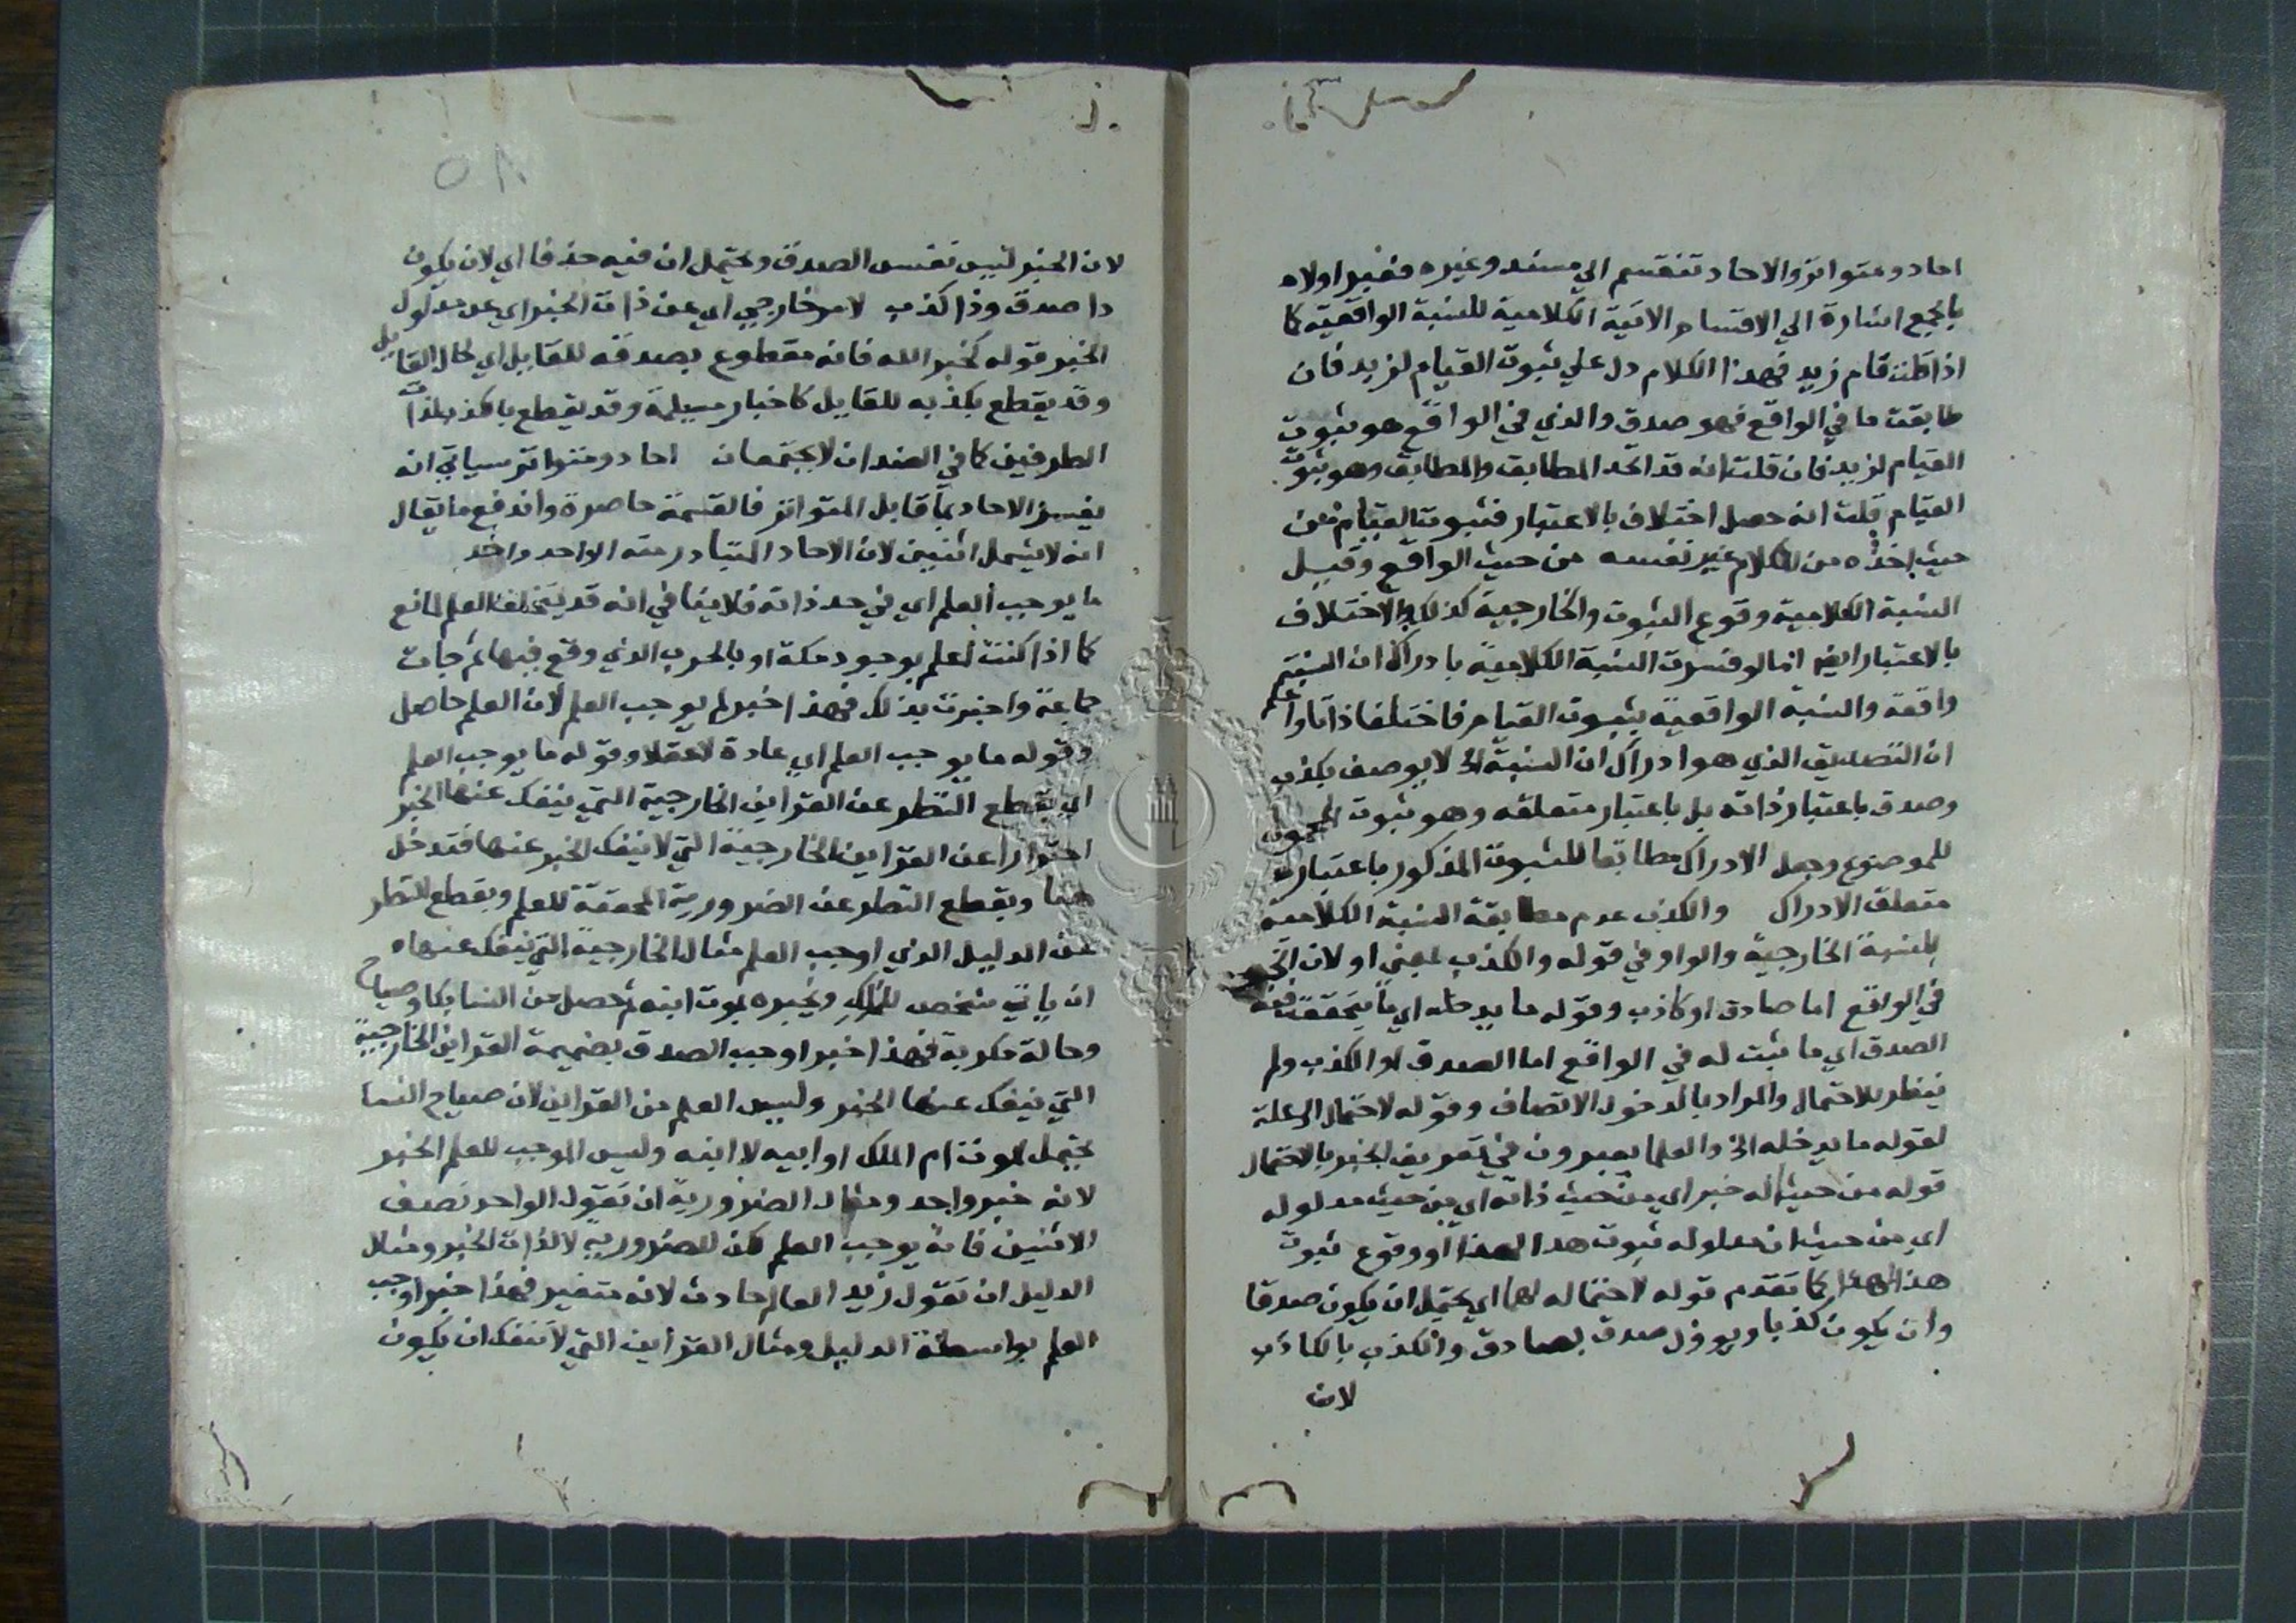 احاد ومتواتر والاحاد تنقسم الي مسند وغيره فغير اولاه
بالجمع اشارة الي الاقسام الاتية الكلامية للنسبة الواقعية كما
اذا قلت قام زيد فهذا الكلام دل علي ثبوت القيام لزيد فان
طابقت ما في الواقع فهو صدق والذي في الواقع هو ثبوت
القيام لزيد فان قلت انه قد اتحد المطابق والمطابق وهو ثبوت
القيام قلت انه حصل اختلاف بالاعتبار فثبوت القيام من
حيث اخذه من الكلام غير نفسه من حيث الواقع وقيل
النسبة الكلامية وقوع الثبوت والخارجية كذلك والاختلاف
بالاعتبار ايضا اما لو فسرت النسبة الكلامية بادراك ان النسبة
واقعة والنسبة الواقعية بثبوت القيام فاختلفا ذاتا واعلم
ان التصديق الذي هو ادراك ان النسبة الخ لا يوصف بكذب
وصدق باعتبار ذاته بل باعتبار متعلقه وهو ثبوت المحمول
للموضوع وجعل الادراك مطابقا للثبوت المذكور باعتبار
متعلق الادراك والكذب عدم مطابقة النسبة الكلامية
للنسبة الخارجية والواو في قوله والكذب بمعني او لان الخبر
في الواقع اما صادق او كاذب وقوله ما يدخله اي ما يتحقق فيه
الصدق اي ما ثبت له في الواقع اما الصدق او الكذب ولم
ينظر للاحتمال والمراد بالدخول الاتصاف وقوله لاحتماله الخ علة
لقوله ما يدخله الخ والعلما يعبرون في تعريف الخبر بالاحتمال
قوله من حيث انه خبر اي من حيث ذاته اي من حيث مدلوله
اي من حيث ان مدلوله ثبوت هذا لهذا او وقوع ثبوت
هذا لهذا كما تقدم قوله لاحتماله لهما اي يحتمل ان يكون صدقا
وان يكون كذبا ويوول صدق بصادق والكذب بالكاذب
لان
٥٨
لان الخبر ليس نفس الصدق ويحتمل ان فيه حذفا اي لان يكون
ذا صدق وذا كذب لامر خارجي اي عن ذات الخبر اي عن مدلول
الخبر قوله كخبر الله فانه مقطوع بصدقه للقايل اي لحال القايل
وقد يقطع بكذبه للقايل كاخبار مسيلمة وقد يقطع بالكذب لذات
الطرفين كما في الضدان لا يجتمعان احاد ومتواتر سياتي انه
يفسر الاحاد بما قابل المتواتر فالقسمة حاصرة واندفع ما يقال
انه لا يشمل اثنين لان الاحاد المتبادر منه الواحد واحد
ما يوجب العلم اي في حد ذاته فلا ينافي انه قد يتخلف العلم لمانع
كما اذا كنت تعلم بوجود مكة او بالحرب الذي وقع فيها ثم جات
جماعة واخبرت بذلك فهذا خبر لم يوجب العلم لان العلم حاصل
وقوله ما يوجب العلم اي عادة لا عقلا وقوله ما يوجب العلم
اي بقطع النظر عن القراين الخارجية التي ينفك عنها الخبر
احترازا عن القراين الخارجية التي لا ينفك الخبر عنها فتدخل
هنا وبقطع النظر عن الضرورية المحققة للعلم وبقطع النظر
عن الدليل الذي اوجب العلم مثال الخارجية التي ينفك عنها
ان ياتي شخص للملك ويخبره بموت ابنه ثم حصل من النسا بكا وصياح
وحالة مكربة فهذا خبر اوجب الصدق بضميمة القراين الخارجية
التي ينفك عنها الخبر وليس العلم من القراين لان صياح النسا
يحتمل لموت ام الملك او ابيه لا ابنه وليس الموجب للعلم الخبر
لانه خبر واحد ومثال الضرورية ان تقول الواحد نصف
الاثنين فانه يوجب العلم لكن للضرورية لا لذات الخبر ومثال
الدليل ان تقول زيد العالم حادث لانه متغير فهذا خبر اوجب
العلم بواسطة الدليل ومثال القراين التي لا تنفك ان يكون